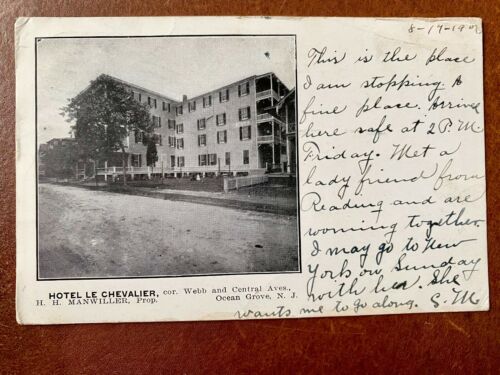 8-19-190
This is the place
I am stopping. A
fine place. Arrived
here safe at 2 P.M.
Friday. Met a
lady friend from
Reading and are
wooming together.
I may go to New
York on Sunday
with her. She
wants me to go along. S. M
HOTEL LE CHEVALIER, cor. Webb and Central Aves.,
H. H. MANWILLER, Prop. Ocean Grove, N. J.